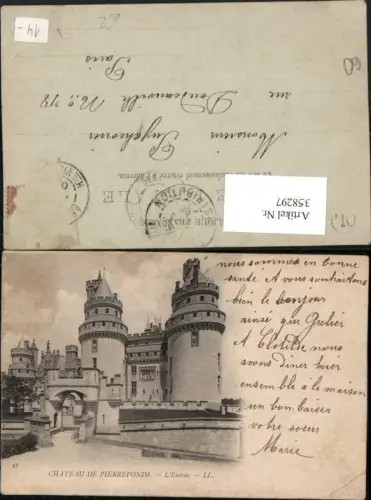 14 -
62
60
Paris
rue Doudeauville No. 78
Monsieur
RÉPUBLIQUE FRANÇAISE
DISTRIBUTION
Artikel Nr.
358297
nous sommes en bonne
santé A vous souhaitons
bien le bonjour
ainsi que Grelier
A Clotilde nous
avons Diner hier
ensemble à la maison
un bon baiser
votre soeur
Marie
47
CHATEAU DE PIERREFONDS. — L'Entrée. — LL.